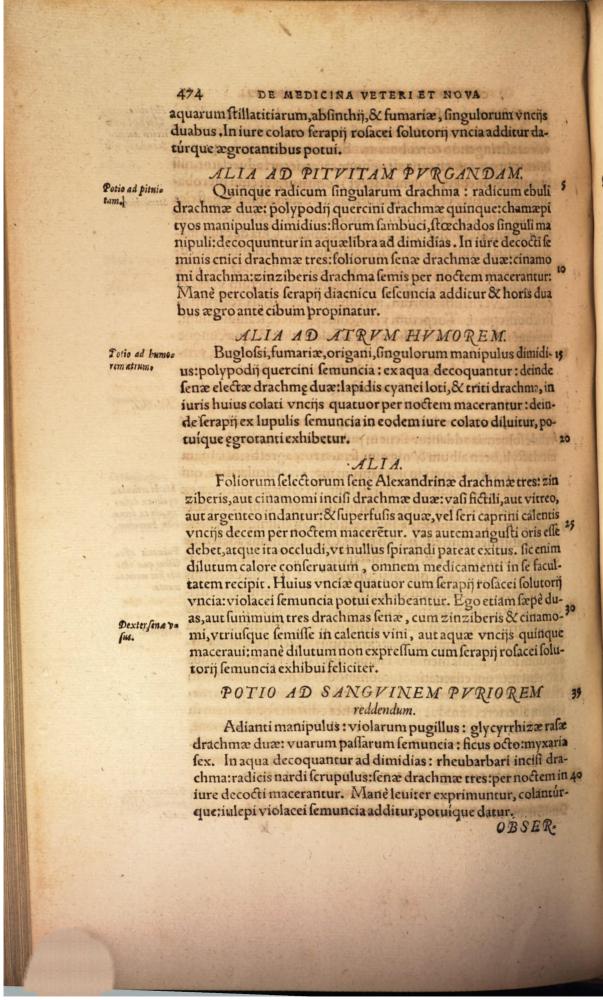 474 DE MEDICINA VETERI ET NOVA
aquarum ſtillatitiarum, abſinthij, & fumariæ, ſingulorum vncijs
duabus. In iure colato ſerapij roſacei ſolutorij vncia additur da-
túrque ægrotantibus potui.
ALIA AD PITVITAM PVRGANDAM.
Potio ad pitui-
tam.
Quinque radicum ſingularum drachma: radicum ebuli 5
drachmæ duæ: polypodij quercini drachmæ quinque: chamæpi
tyos manipulus dimidius: florum ſambuci, ſtœchados ſinguli ma
nipuli: decoquuntur in aquæ libra ad dimidias. In iure decocti ſe
minis cnici drachmæ tres: foliorum ſenæ drachmæ duæ: cinamo
mi drachma: zinziberis drachma ſemis per noctem macerantur: 10
Manè percolatis ſerapij diacnicu ſeſcuncia additur & horis dua
bus ægro antè cibum propinatur.
ALIA AD ATRVM HVMOREM.
Potio ad humo-
rem atrum.
Bugloſſi, fumariæ, origani, ſingulorum manipulus dimidi- 15
us: polypodij quercini ſemuncia: ex aqua decoquantur: deinde
ſenæ electæ drachmę duæ: lapidis cyanei loti, & triti drachma, in
iuris huius colati vncijs quatuor per noctem macerantur: dein-
de ſerapij ex lupulis ſemuncia in eodem iure colato diluitur, po-
tuíque ęgrotanti exhibetur. 20
ALIA.
Foliorum ſelectorum ſenę Alexandrinæ drachmæ tres: zin
ziberis, aut cinamomi inciſi drachmæ duæ: vaſi fictili, aut vitreo,
aut argenteo indantur: & ſuperfuſis aquæ, vel ſeri caprini calentis
vncijs decem per noctem macerẽtur. vas autem anguſti oris eſſe 25
debet, atque ita occludi, vt nullus ſpirandi pateat exitus. ſic enim
dilutum calore conſeruatum, omnem medicamenti in ſe facul-
tatem recipit. Huius vnciæ quatuor cum ſerapij roſacei ſolutorij
vncia: violacei ſemuncia potui exhibeantur. Ego etiam ſæpè du-
as, aut ſummum tres drachmas ſenæ, cum zinziberis & cinamo- 30
Dexter ſenæ v-
ſus.
mi, vtriuſque ſemiſſe in calentis vini, aut aquæ vncijs quinque
maceraui: manè dilutum non expreſſum cum ſerapij roſacei ſolu-
torij ſemuncia exhibui feliciter.
POTIO AD SANGVINEM PVRIOREM 35
reddendum.
Adianti manipulus: violarum pugillus: glycyrrhizæ raſæ
drachmæ duæ: vuarum paſſarum ſemuncia: ficus octo: myxaria
ſex. In aqua decoquantur ad dimidias: rheubarbari inciſi dra-
chma: radicis nardi ſcrupulus: ſenæ drachmæ tres: per noctem in 40
iure decocti macerantur. Manè leuiter exprimuntur, colántúr-
que: iulepi violacei ſemuncia additur, potuíque datur.
OBSER-